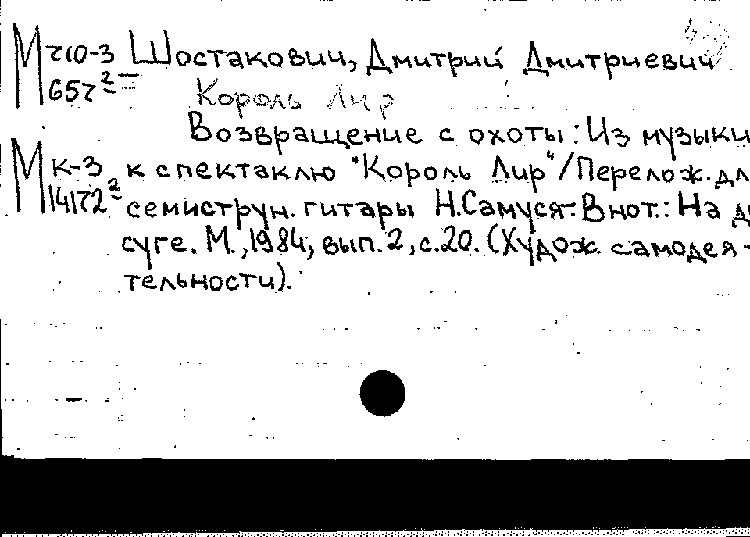 М г10-3 Шостакович, Дмитрий Дмитриевич
657² Король Лир
Возвращение с охоты: Из музыки
М к-3 к спектаклю "Король Лир"/Перелож. дл
14172² семиструн. гитары Н. Самуся.- В нот.: На д
суге. М., 1984, вып. 2, с. 20. (Худож. самодея-
тельности).